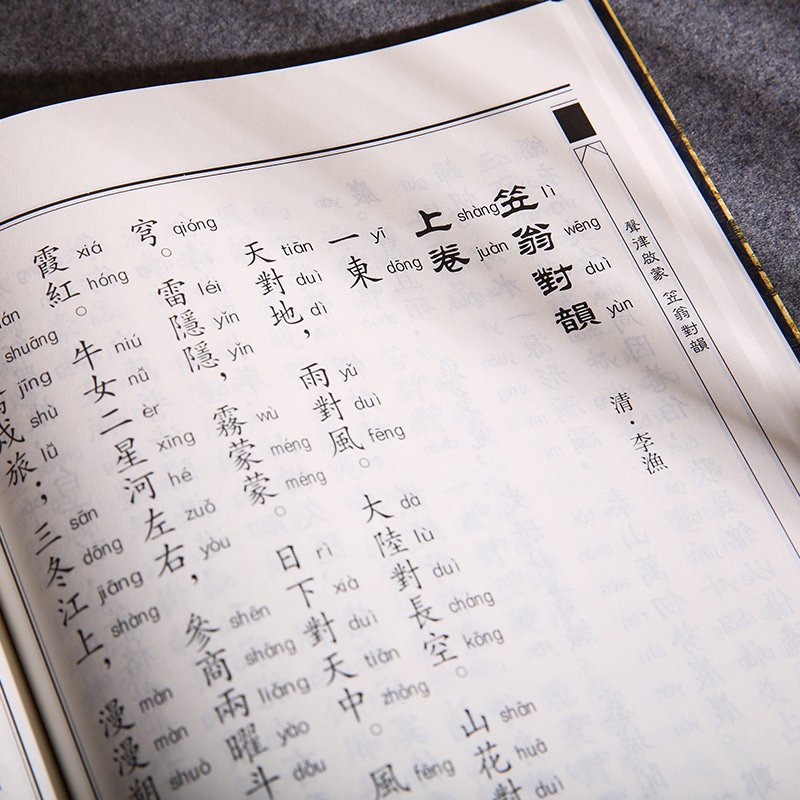 聲律啟蒙 笠翁對韻
笠翁對韻
lì wēng duì yùn
清·李漁
上卷
shàng juàn
一東
yī dōng
天對地，雨對風。大陸對長空。山花對
tiān duì dì yǔ duì fēng dà lù duì cháng kōng shān huā duì
穹。雷隱隱，霧蒙蒙。日下對天中。風
qióng léi yǐn yǐn wù méng méng rì xià duì tiān zhōng fēng
霞紅。牛女二星河左右，參商兩曜斗
xiá hóng niú nǚ èr xīng hé zuǒ yòu shēn shāng liǎng yào dǒu
戍旅；三冬江上，漫漫朔
shuāng jīng shù lǚ sān dōng jiāng shàng màn màn shuò